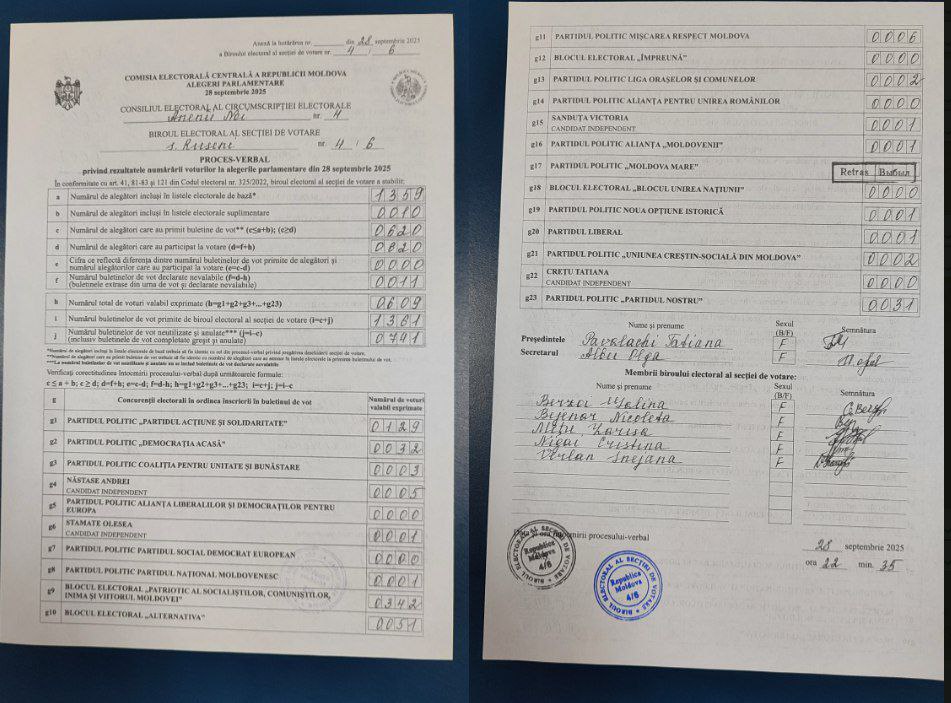 Anexă la hotărârea nr. din 28 septembrie 2025
a Biroului electoral al secției de votare nr. 4 / 6
COMISIA ELECTORALĂ CENTRALĂ A REPUBLICII MOLDOVA
ALEGERI PARLAMENTARE
28 septembrie 2025
CONSILIUL ELECTORAL AL CIRCUMSCRIPȚIEI ELECTORALE
Anenii Noi nr. 4
BIROUL ELECTORAL AL SECȚIEI DE VOTARE
s. Ruseni nr. 4 / 6
PROCES-VERBAL
privind rezultatele numărării voturilor la alegerile parlamentare din 28 septembrie 2025
În conformitate cu art. 41, 81-83 și 121 din Codul electoral nr. 325/2022, biroul electoral al secției de votare a stabilit:
a Numărul de alegători incluși în listele electorale de bază* 1359
b Numărul de alegători incluși în listele electorale suplimentare 0010
c Numărul de alegători care au primit buletine de vot** (c≤a+b); (c≥d) 0620
d Numărul de alegători care au participat la votare (d=f+h) 0620
e Cifra ce reflectă diferența dintre numărul buletinelor de vot primite de alegători și
numărul alegătorilor care au participat la votare (e=c-d) 0000
f Numărul buletinelor de vot declarate nevalabile (f=d-h)
(buletinele extrase din urna de vot și declarate nevalabile) 0011
h Numărul total de voturi valabil exprimate (h=g1+g2+g3+...+g23) 0609
i Numărul buletinelor de vot primite de biroul electoral al secției de votare (i=c+j) 1361
j Numărul buletinelor de vot neutilizate și anulate*** (j=i-c)
(inclusiv buletinele de vot completate greșit și anulate) 0741
Verificați corectitudinea întocmirii procesului-verbal după următoarele formule:
c ≤ a + b; c ≥ d; d=f+h; e=c-d; f=d-h; h=g1+g2+g3+...+g23; i=c+j; j=i-c
g Concurenții electorali în ordinea înscrierii în buletinul de vot Numărul de voturi
valabil exprimate
g1 PARTIDUL POLITIC „PARTIDUL ACȚIUNE ȘI SOLIDARITATE” 0129
g2 PARTIDUL POLITIC „DEMOCRAȚIA ACASĂ” 0032
g3 PARTIDUL POLITIC COALIȚIA PENTRU UNITATE ȘI BUNĂSTARE 0003
g4 NĂSTASE ANDREI
CANDIDAT INDEPENDENT 0005
g5 PARTIDUL POLITIC ALIANȚA LIBERALILOR ȘI DEMOCRAȚILOR PENTRU
EUROPA 0000
g6 STAMATE OLESEA
CANDIDAT INDEPENDENT 0001
g7 PARTIDUL POLITIC PARTIDUL SOCIAL DEMOCRAT EUROPEAN 0000
g8 PARTIDUL POLITIC PARTIDUL NAȚIONAL MOLDOVENESC 0001
g9 BLOCUL ELECTORAL „PATRIOTIC AL SOCIALIȘTILOR, COMUNIȘTILOR,
INIMA ȘI VIITORUL MOLDOVEI” 0342
g10 BLOCUL ELECTORAL „ALTERNATIVA” 0051
g11 PARTIDUL POLITIC MIȘCAREA RESPECT MOLDOVA 0006
g12 BLOCUL ELECTORAL „ÎMPREUNĂ” 0000
g13 PARTIDUL POLITIC LIGA ORAȘELOR ȘI COMUNELOR 0002
g14 PARTIDUL POLITIC ALIANȚA PENTRU UNIREA ROMÂNILOR 0000
g15 SANDUȚA VICTORIA
CANDIDAT INDEPENDENT 0001
g16 PARTIDUL POLITIC ALIANȚA „MOLDOVENII” 0001
g17 PARTIDUL POLITIC „MOLDOVA MARE” Retras Выбыл
g18 BLOCUL ELECTORAL „BLOCUL UNIREA NAȚIUNII” 0000
g19 PARTIDUL POLITIC NOUA OPȚIUNE ISTORICĂ 0001
g20 PARTIDUL LIBERAL 0001
g21 PARTIDUL POLITIC „UNIUNEA CREȘTIN-SOCIALĂ DIN MOLDOVA” 0002
g22 CREȚU TATIANA
CANDIDAT INDEPENDENT 0000
g23 PARTIDUL POLITIC „PARTIDUL NOSTRU” 0031
Nume și prenume Sexul
(B/F) Semnătura
Președintele Pavalachi Tatiana F
Secretarul Albu Olga F
Membrii biroului electoral al secției de votare:
Nume și prenume Sexul
(B/F) Semnătura
Berzoi Galina F
Bejenar Nicoleta F
Larisa F
Nigai Cristina F
Verlan Snejana F
întocmirii procesului-verbal 28 septembrie 2025
ora 22 min. 35
BIROUL ELECTORAL AL SECȚIEI DE VOTARE
Republica
Moldova
4/6
BIROUL ELECTORAL AL SECȚIEI DE VOTARE
Republica
Moldova
4/6